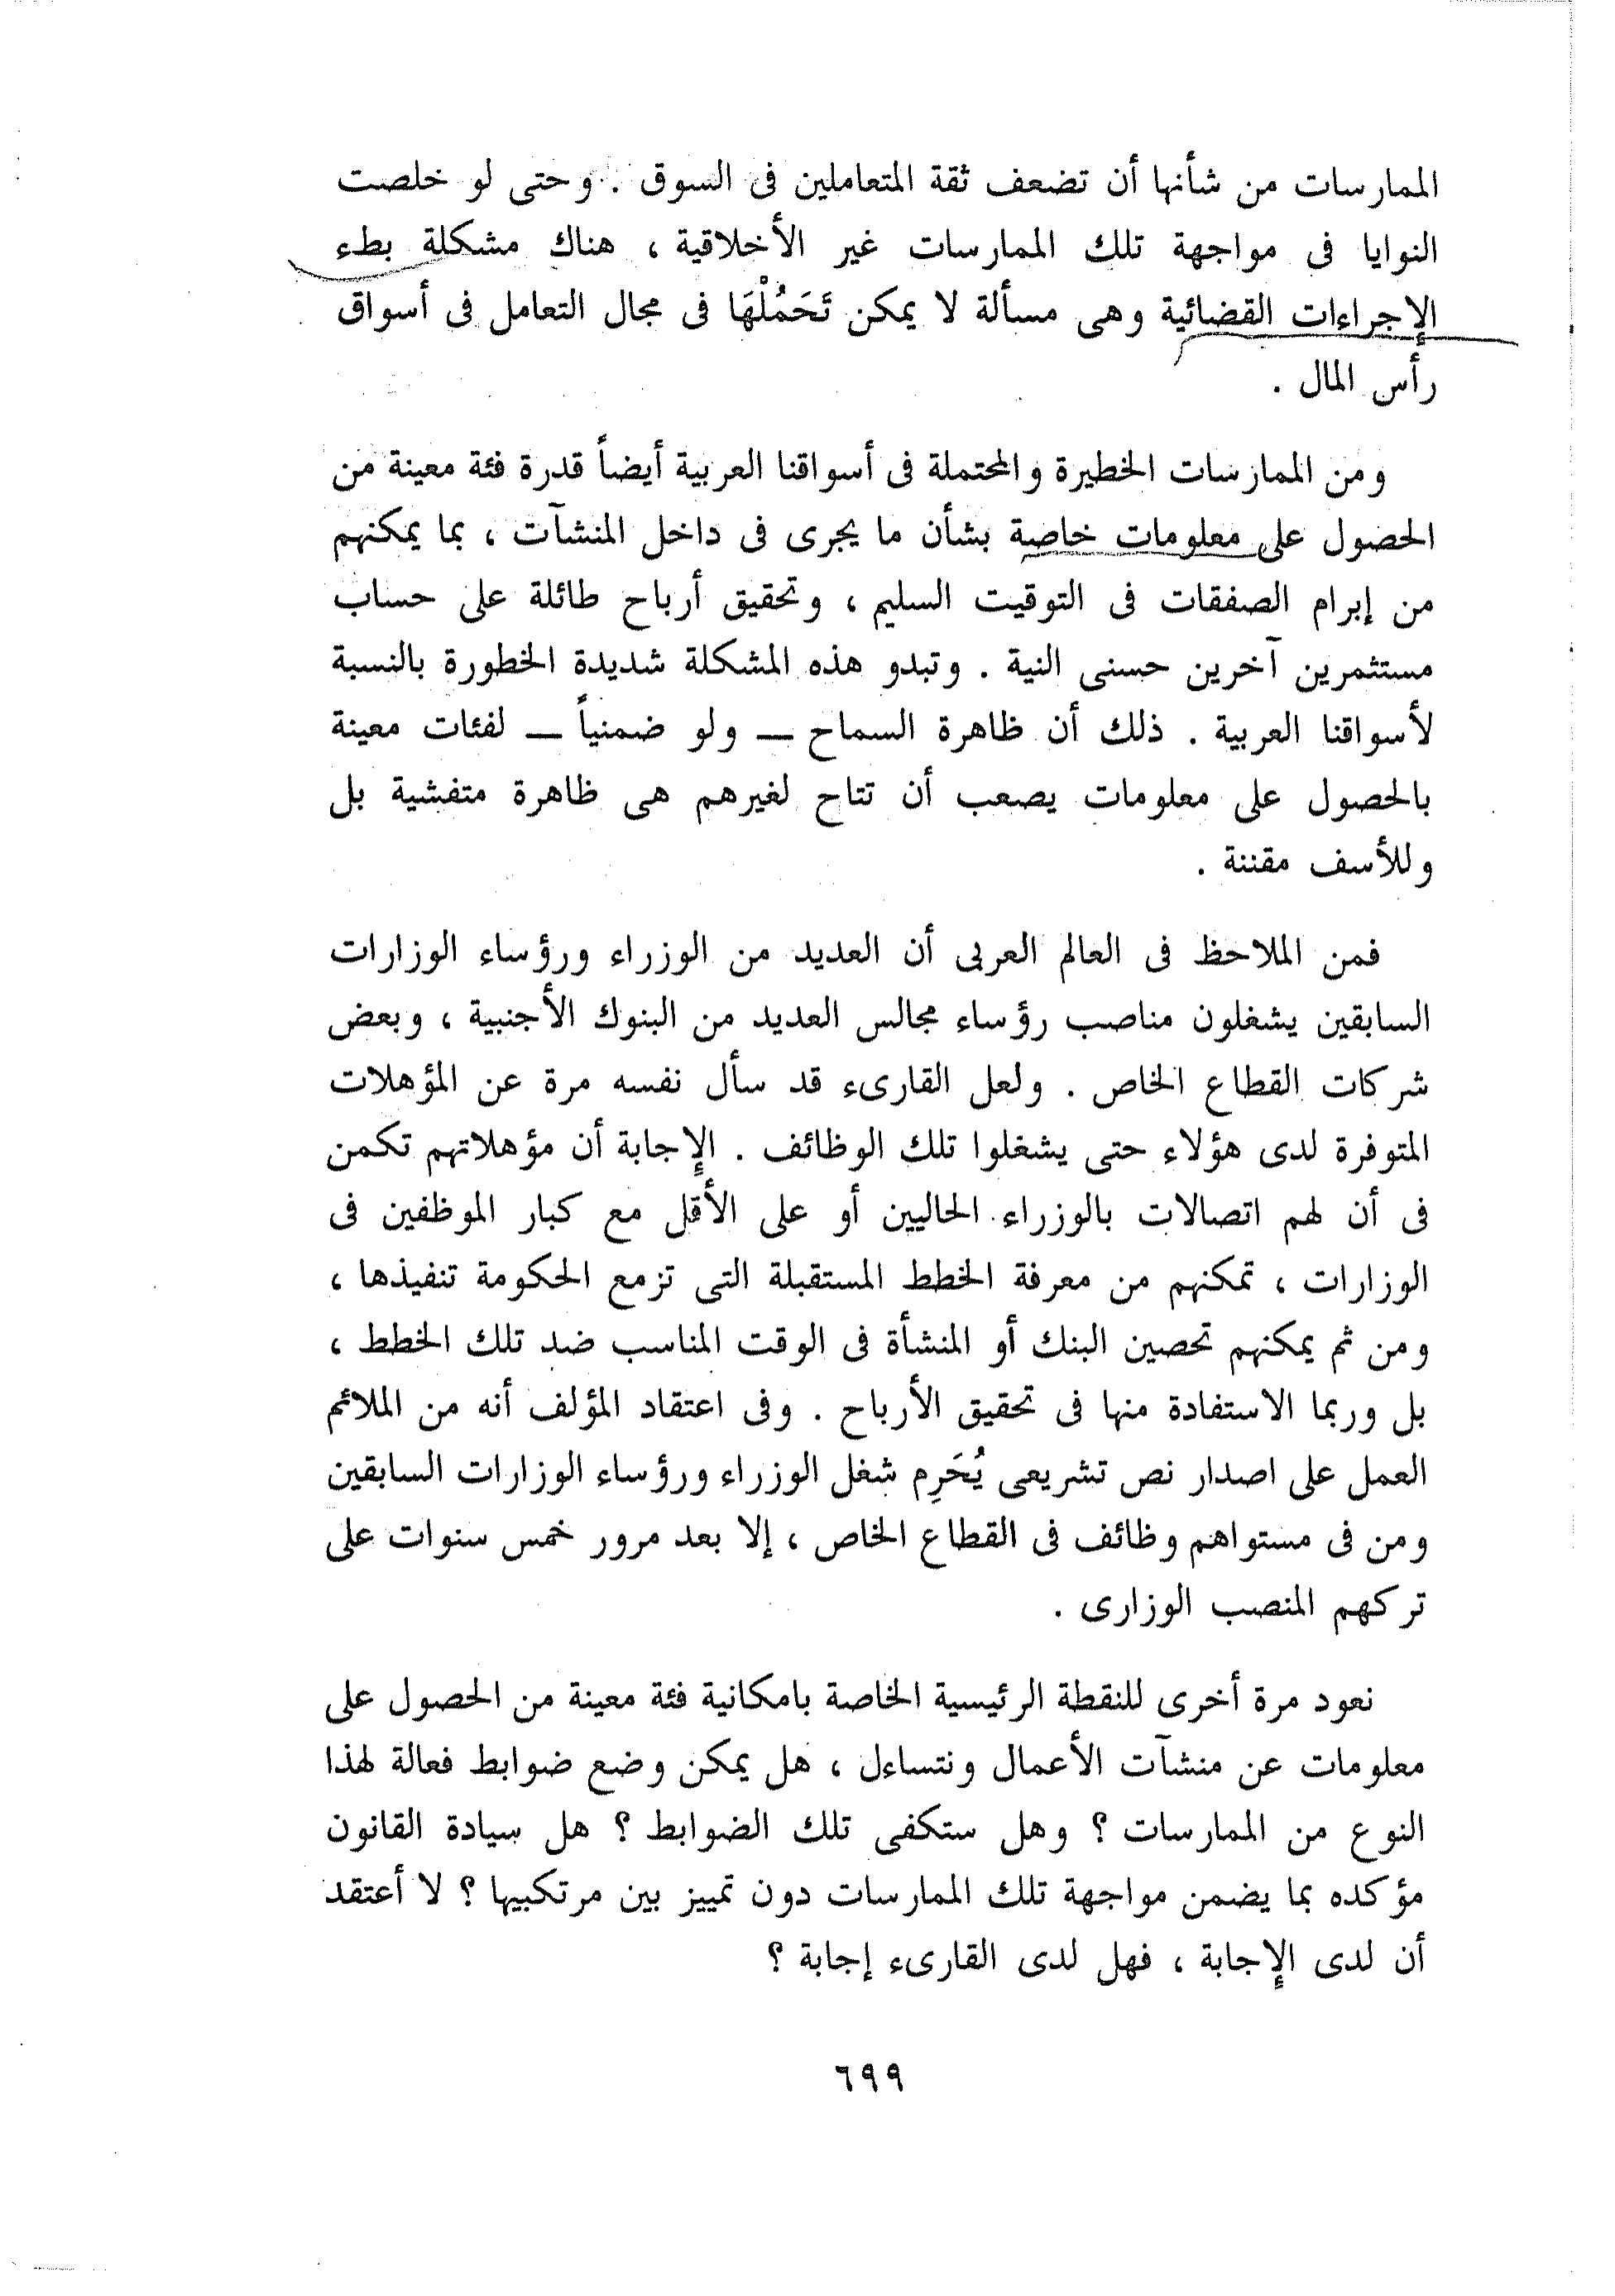 الممارسات من شأنها أن تضعف ثقة المتعاملين فى السوق . وحتى لو خلصت
النوايا فى مواجهة تلك الممارسات غير الأخلاقية ، هناك مشكلة بطء
الإجراءات القضائية وهى مسألة لا يمكن تَحَمُلْهَا فى مجال التعامل فى أسواق
رأس المال .
ومن الممارسات الخطيرة والمحتملة فى أسواقنا العربية أيضاً قدرة فئة معينة من
الحصول على معلومات خاصة بشأن ما يجرى فى داخل المنشآت ، بما يمكنهم
من إبرام الصفقات فى التوقيت السليم ، وتحقيق أرباح طائلة على حساب
مستثمرين آخرين حسنى النية . وتبدو هذه المشكلة شديدة الخطورة بالنسبة
لأسواقنا العربية . ذلك أن ظاهرة السماح — ولو ضمنياً — لفئات معينة
بالحصول على معلومات يصعب أن تتاح لغيرهم هى ظاهرة متفشية بل
وللأسف مقننة .
فمن الملاحظ فى العالم العربى أن العديد من الوزراء ورؤساء الوزارات
السابقين يشغلون مناصب رؤساء مجالس العديد من البنوك الأجنبية ، وبعض
شركات القطاع الخاص . ولعل القارىء قد سأل نفسه مرة عن المؤهلات
المتوفرة لدى هؤلاء حتى يشغلوا تلك الوظائف . الإجابة أن مؤهلاتهم تكمن
فى أن لهم اتصالات بالوزراء الحاليين أو على الأقل مع كبار الموظفين فى
الوزارات ، تمكنهم من معرفة الخطط المستقبلة التى تزمع الحكومة تنفيذها ،
ومن ثم يمكنهم تحصين البنك أو المنشأة فى الوقت المناسب ضد تلك الخطط ،
بل وربما الاستفادة منها فى تحقيق الأرباح . وفى اعتقاد المؤلف أنه من الملائم
العمل على اصدار نص تشريعى يُحَرِم شغل الوزراء ورؤساء الوزارات السابقين
ومن فى مستواهم وظائف فى القطاع الخاص ، إلا بعد مرور خمس سنوات على
تركهم المنصب الوزارى .
نعود مرة أخرى للنقطة الرئيسية الخاصة بامكانية فئة معينة من الحصول على
معلومات عن منشآت الأعمال ونتساءل ، هل يمكن وضع ضوابط فعالة لهذا
النوع من الممارسات ؟ وهل ستكفى تلك الضوابط ؟ هل سيادة القانون
مؤكده بما يضمن مواجهة تلك الممارسات دون تمييز بين مرتكبيها ؟ لا أعتقد
أن لدى الإجابة ، فهل لدى القارىء إجابة ؟
٦٩٩